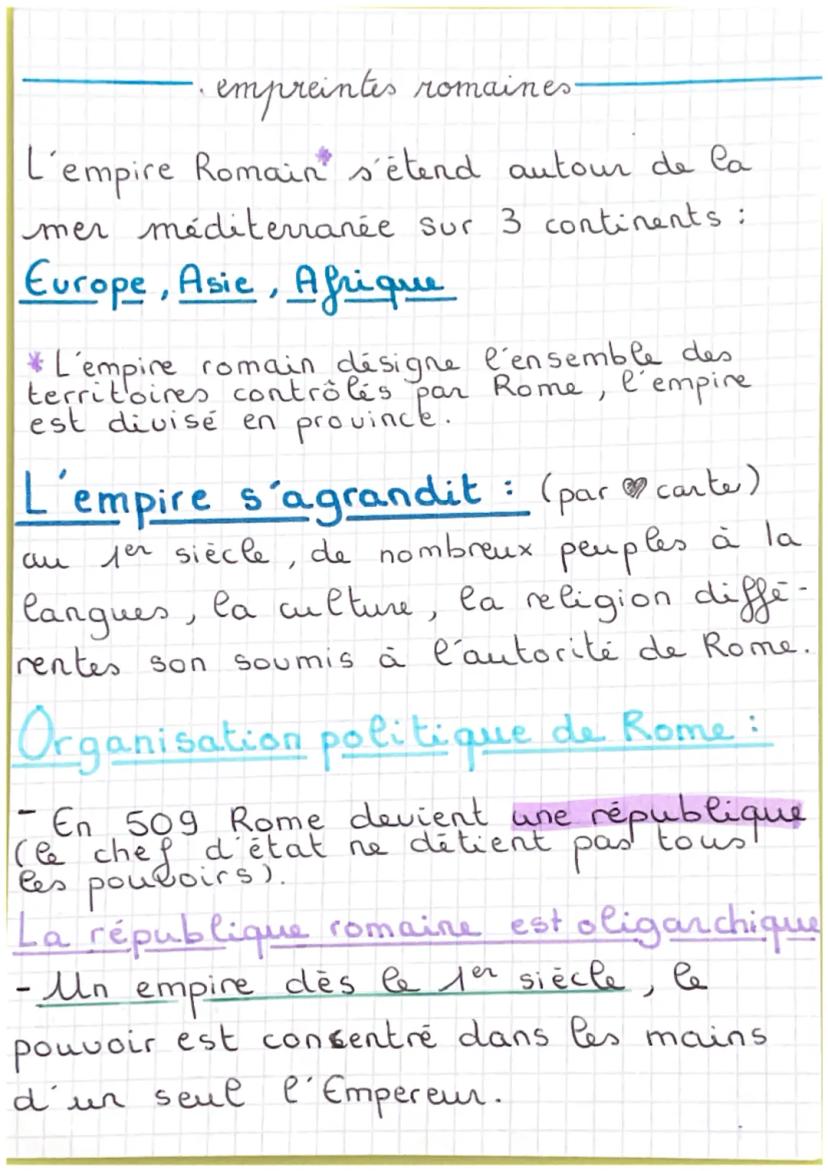 . empreintes romaines
L'empire Romain* s'étend autour de la
mer méditerranée sur 3 continents :
Europe, Asie, Afrique
* L'empire romain désigne l'ensemble des
territoires contrôlés par Rome, l'empire
est divisé en province.
L'empire s'agrandit : (par ♥ carte)
au 1er siècle, de nombreux peuples à la
langues, la culture, la religion diffé-
rentes son soumis à l'autorité de Rome.
Organisation politique de Rome :
- En 509 Rome devient une république
(le chef d'état ne détient pas tous
les pouvoirs).
La république romaine est oligarchique
- Un empire dès le 1er siècle, le
pouvoir est consentré dans les mains
d'un seul l'Empereur.